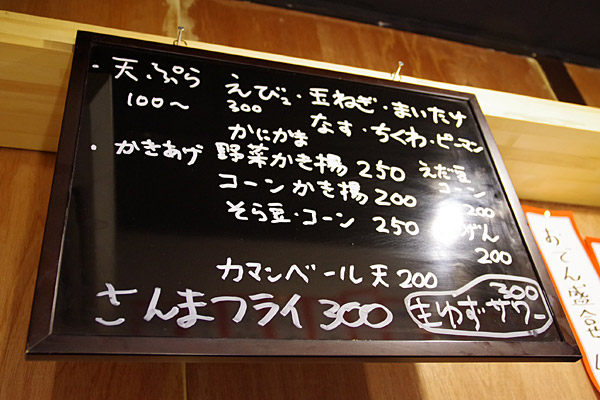 ・天ぷら えび2・玉ねぎ・まいたけ
100〜 300 なす・ちくわ・ピーマン
かにかま
・かきあげ 野菜かき揚 250 えだ豆
コーンかき揚 200 コーン
200
そら豆・コーン 250
200
カマンベール天 200
さんまフライ 300 生ゆずサワー
300
おでん盛合せ